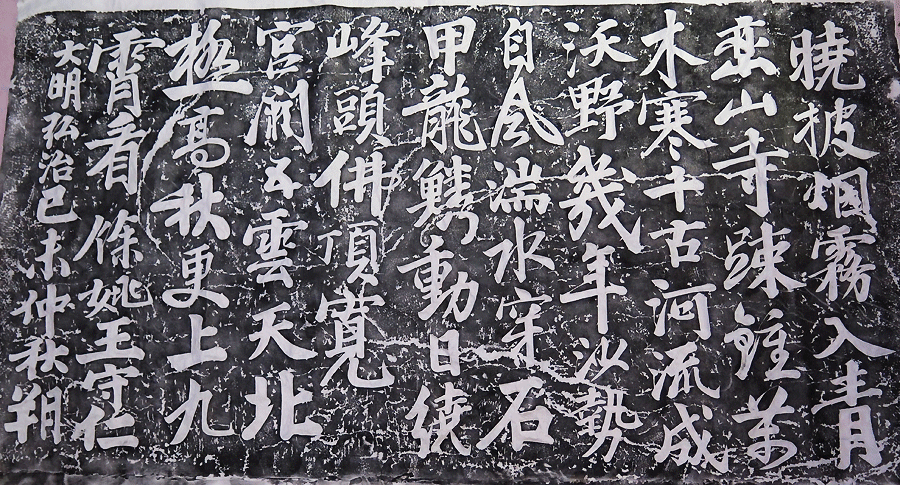 曉披烟霧入青
巒山寺踈鍾萬
木寒千古河流成
沃野幾年沙勢
自風湍水穿石
甲龍鱗動日繞
峰頭佛頂寬
宮闕五雲天北
極高秋更上九
霄看 餘姚王守仁
大明弘治己未仲秋朔